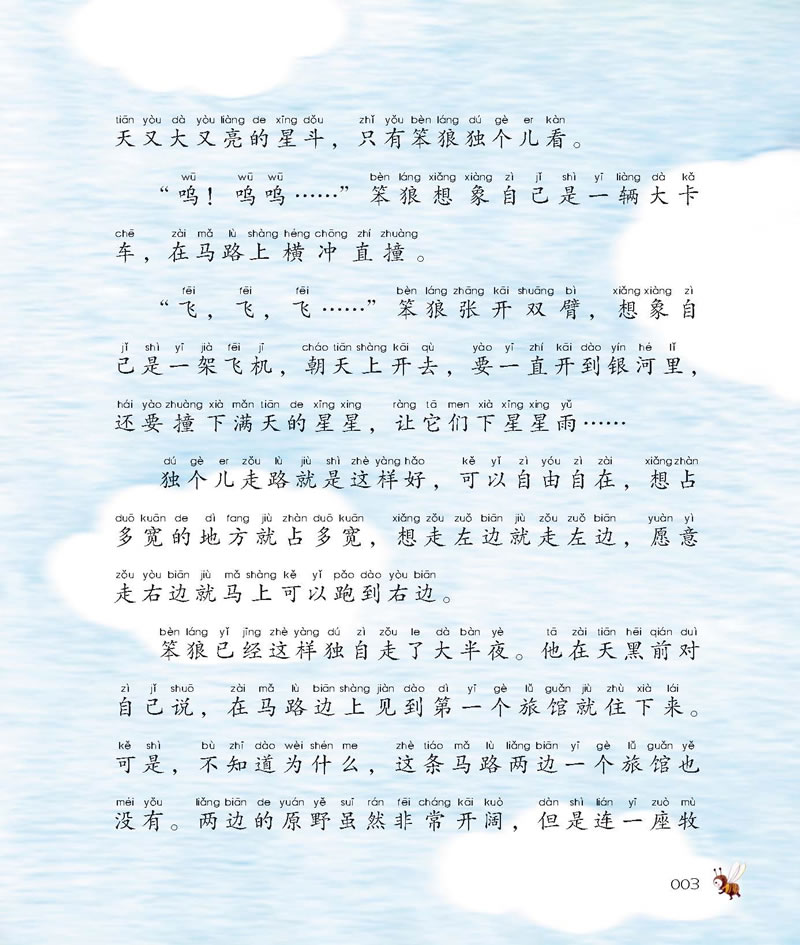 tiān yòu dà yòu liàng de xīng dǒu zhǐ yǒu bèn láng dú gè er kàn
天又大又亮的星斗，只有笨狼独个儿看。
wū wū wū bèn láng xiǎng xiàng zì jǐ shì yī liàng dà kǎ
“呜！呜呜……”笨狼想象自己是一辆大卡
chē zài mǎ lù shàng héng chōng zhí zhuàng
车，在马路上横冲直撞。
fēi fēi fēi bèn láng zhāng kāi shuāng bì xiǎng xiàng zì
“飞，飞，飞……”笨狼张开双臂，想象自
jǐ shì yī jià fēi jī cháo tiān shàng kāi qù yào yī zhí kāi dào yín hé lǐ
己是一架飞机，朝天上开去，要一直开到银河里，
hái yào zhuàng xià mǎn tiān de xīng xing ràng tā men xià xīng xing yǔ
还要撞下满天的星星，让它们下星星雨……
dú gè er zǒu lù jiù shì zhè yàng hǎo kě yǐ zì yóu zì zài xiǎng zhàn
独个儿走路就是这样好，可以自由自在，想占
duō kuān de dì fang jiù zhàn duō kuān xiǎng zǒu zuǒ biān jiù zǒu zuǒ biān yuàn yì
多宽的地方就占多宽，想走左边就走左边，愿意
zǒu yòu biān jiù mǎ shàng kě yǐ pǎo dào yòu biān
走右边就马上可以跑到右边。
bèn láng yǐ jīng zhè yàng dú zì zǒu le dà bàn yè tā zài tiān hēi qián duì
笨狼已经这样独自走了大半夜。他在天黑前对
zì jǐ shuō zài mǎ lù biān shàng jiàn dào dì yī gè lǚ guǎn jiù zhù xià lái
自己说，在马路边上见到第一个旅馆就住下来。
kě shì bù zhī dào wèi shén me zhè tiáo mǎ lù liǎng biān yī gè lǚ guǎn yě
可是，不知道为什么，这条马路两边一个旅馆也
méi yǒu liǎng biān de yuán yě suī rán fēi cháng kāi kuò dàn shì lián yī zuò mù
没有。两边的原野虽然非常开阔，但是连一座牧
003